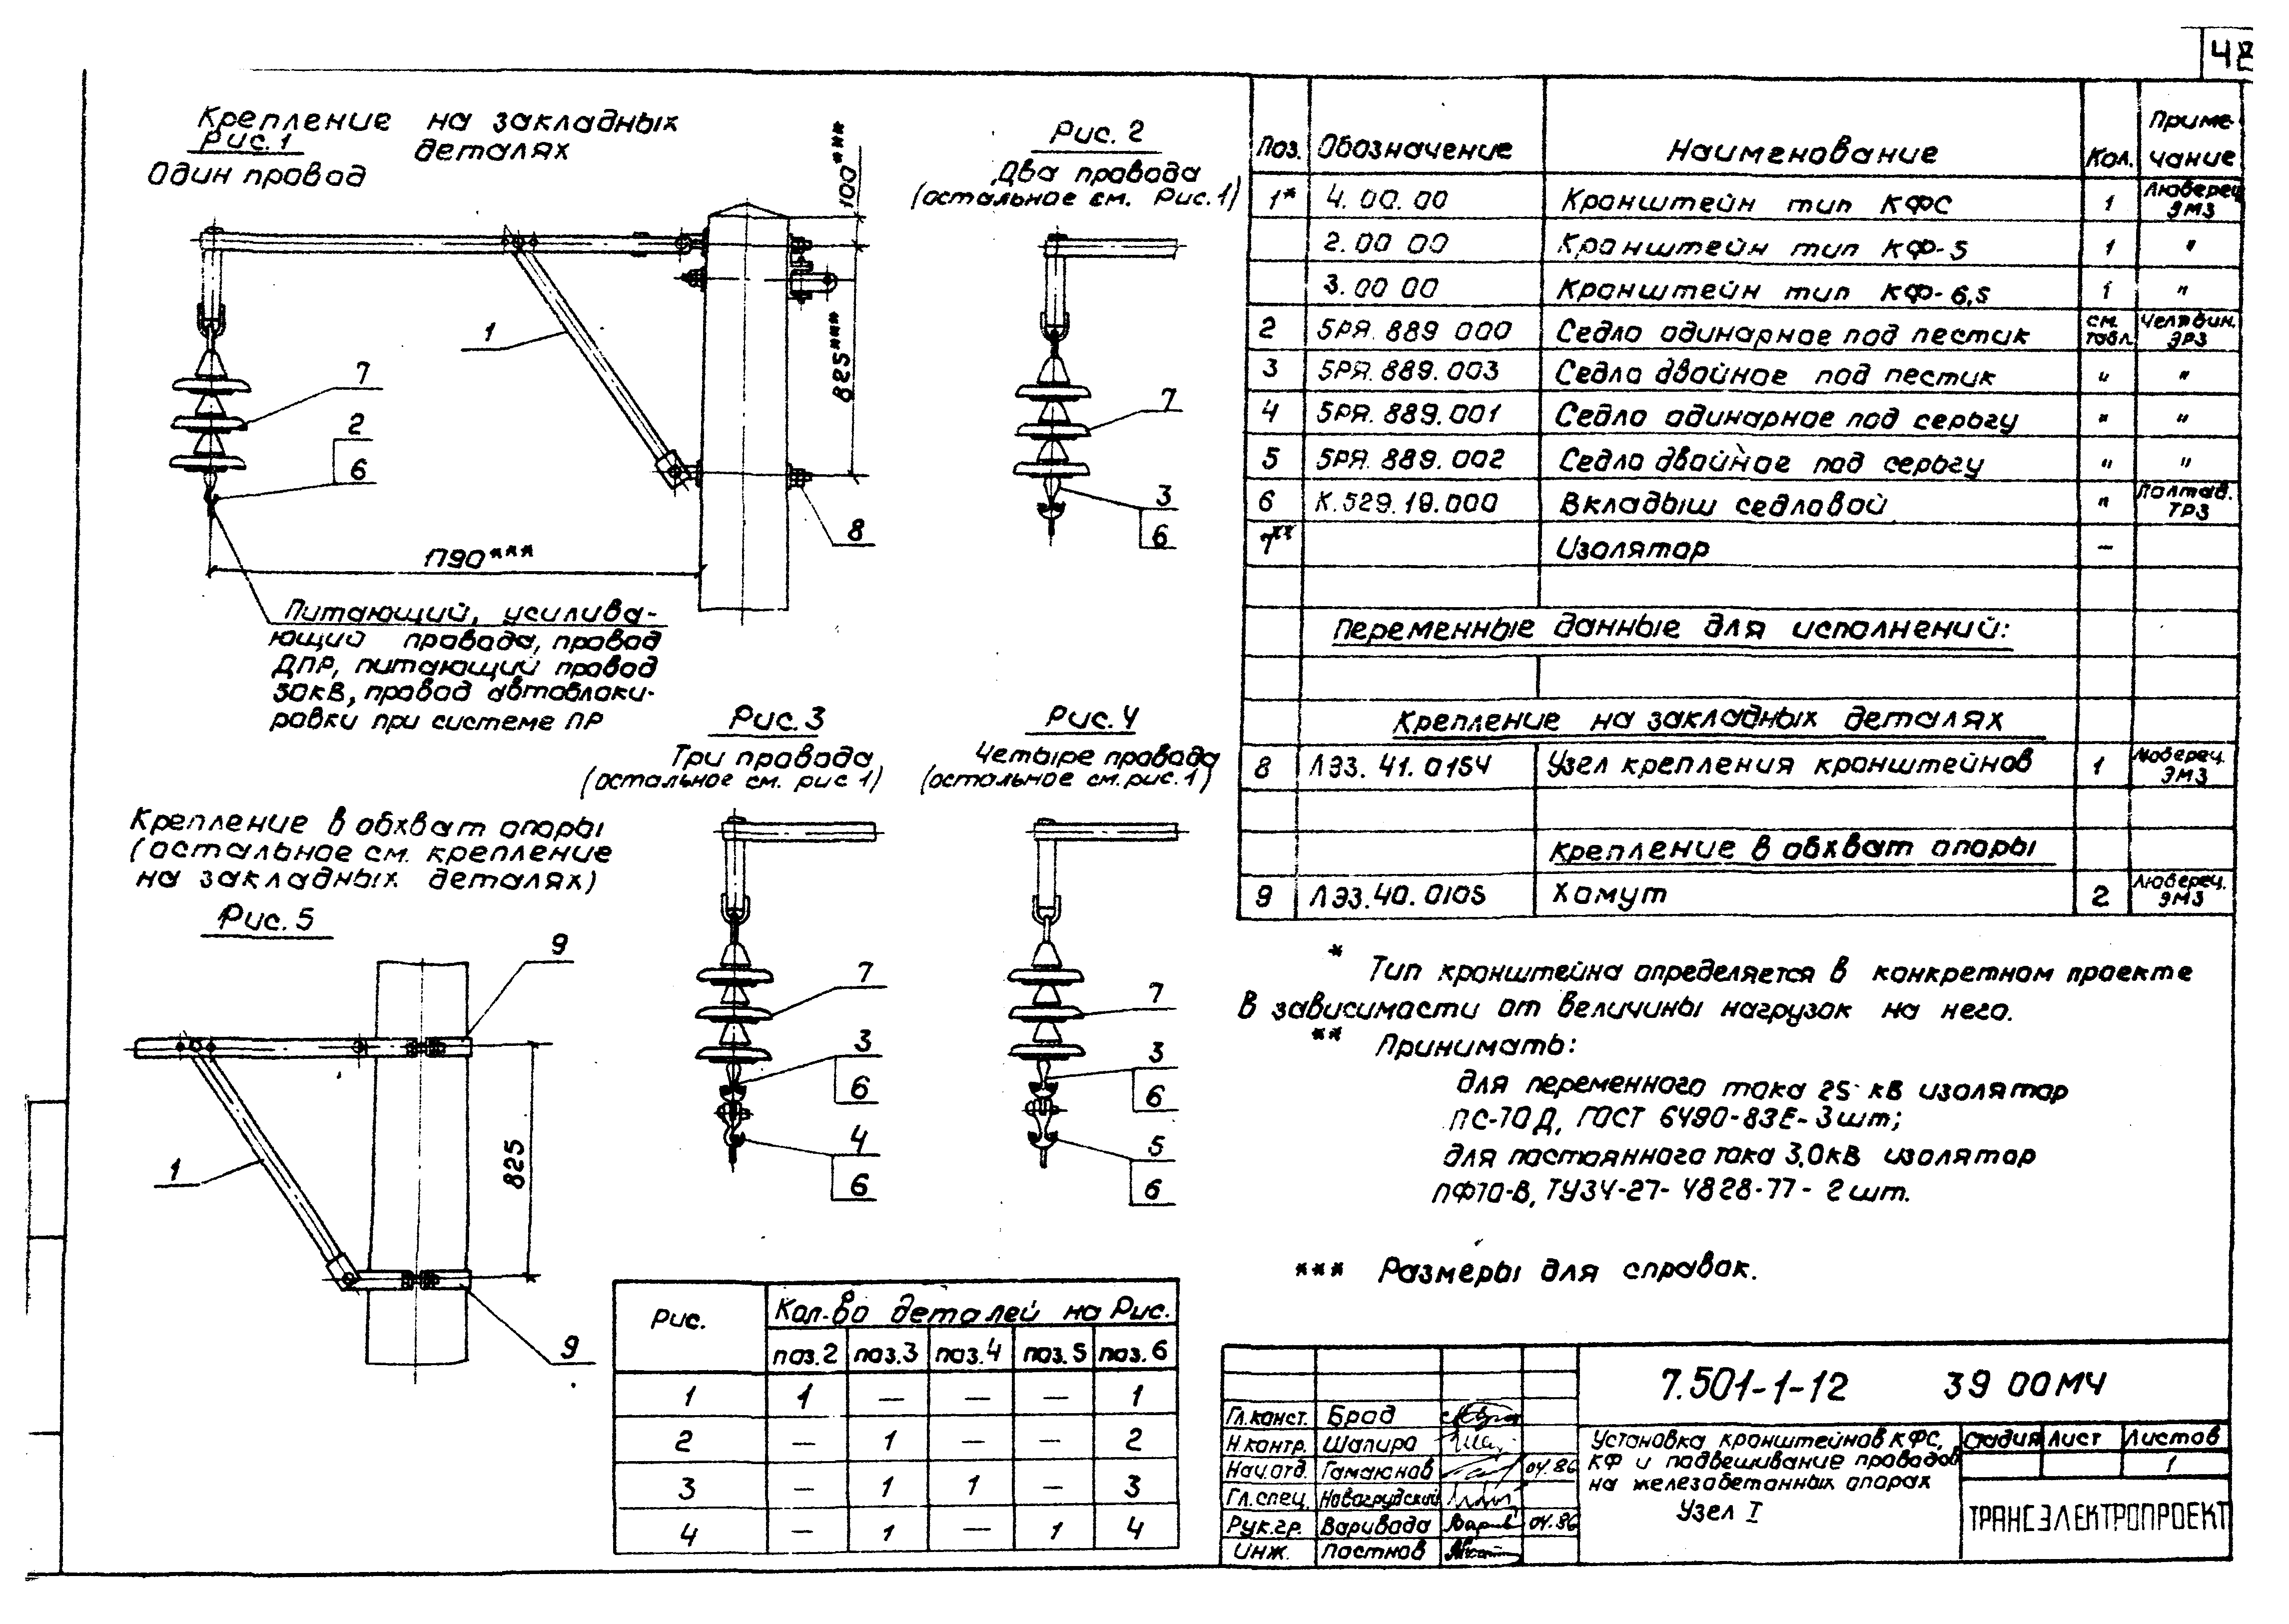 Крепление на закладных
деталях
Рис. 1
Один провод
100***
825***
1
7
2
6
8
1790***
Питающий, усилива-
ющий провода, провод
ДПР, питающий провод
30кВ, провод автоблоки-
ровки при системе ПР
Рис. 2
Два провода
(остальное см. Рис. 1)
7
3
6
Рис. 3
Три провода
(остальное см. рис 1)
7
3
6
4
6
Рис. 4
Четыре провода
(остальное см. рис. 1)
7
3
6
5
6
Крепление в обхват опоры
(остальное см. крепление
на закладных деталях)
Рис. 5
9
1
825
9
Рис. Кол-во деталей на Рис.
поз. 2 поз. 3 поз. 4 поз. 5 поз. 6
1 1 — — — 1
2 — 1 — — 2
3 — 1 1 — 3
4 — 1 — 1 4
Поз. Обозначение Наименование Кол. Приме-
чание
1* 4. 00. 00 Кронштейн тип КФС 1 Люберец.
ЭМЗ
2. 00 00 Кронштейн тип КФ-5 1 "
3. 00 00 Кронштейн тип КФ-6,5 1 "
2 5РЯ. 889 000 Седло одинарное под пестик см.
табл. Челябин.
ЭРЗ
3 5РЯ. 889. 003 Седло двойное под пестик " "
4 5РЯ. 889. 001 Седло одинарное под серьгу " "
5 5РЯ. 889. 002 Седло двойное под серьгу " "
6 К. 529. 19. 000 Вкладыш седловой " Полтав.
ТРЗ
7** Изолятор —
Переменные данные для исполнений:
Крепление на закладных деталях
8 ЛЭЗ. 41. 0154 Узел крепления кронштейнов 1 Люберец.
ЭМЗ
Крепление в обхват опоры
9 ЛЭЗ. 40. 0105 Хомут 2 Люберец.
ЭМЗ
* Тип кронштейна определяется в конкретном проекте
в зависимости от величины нагрузок на него.
** Принимать:
для переменного тока 25 кВ изолятор
ПС-70Д, ГОСТ 6490-83Е- 3 шт;
для постоянного тока 3,0кВ изолятор
ПФ70-В, ТУ34-27-4828-77- 2 шт.
*** Размеры для справок.
7.501-1-12 39 00МЧ
Гл. конст. Брод
Н. контр. Шапиро
Нач. отд. Гамаюнов 04.86
Гл. спец. Новогрудский
Рук. гр. Варивода 04.86
Инж. Постнов
Установка кронштейнов КФС,
КФ и подвешивание проводов
на железобетонных опорах
Узел I
Стадия Лист Листов
1
ТРАНСЭЛЕКТРОПРОЕКТ